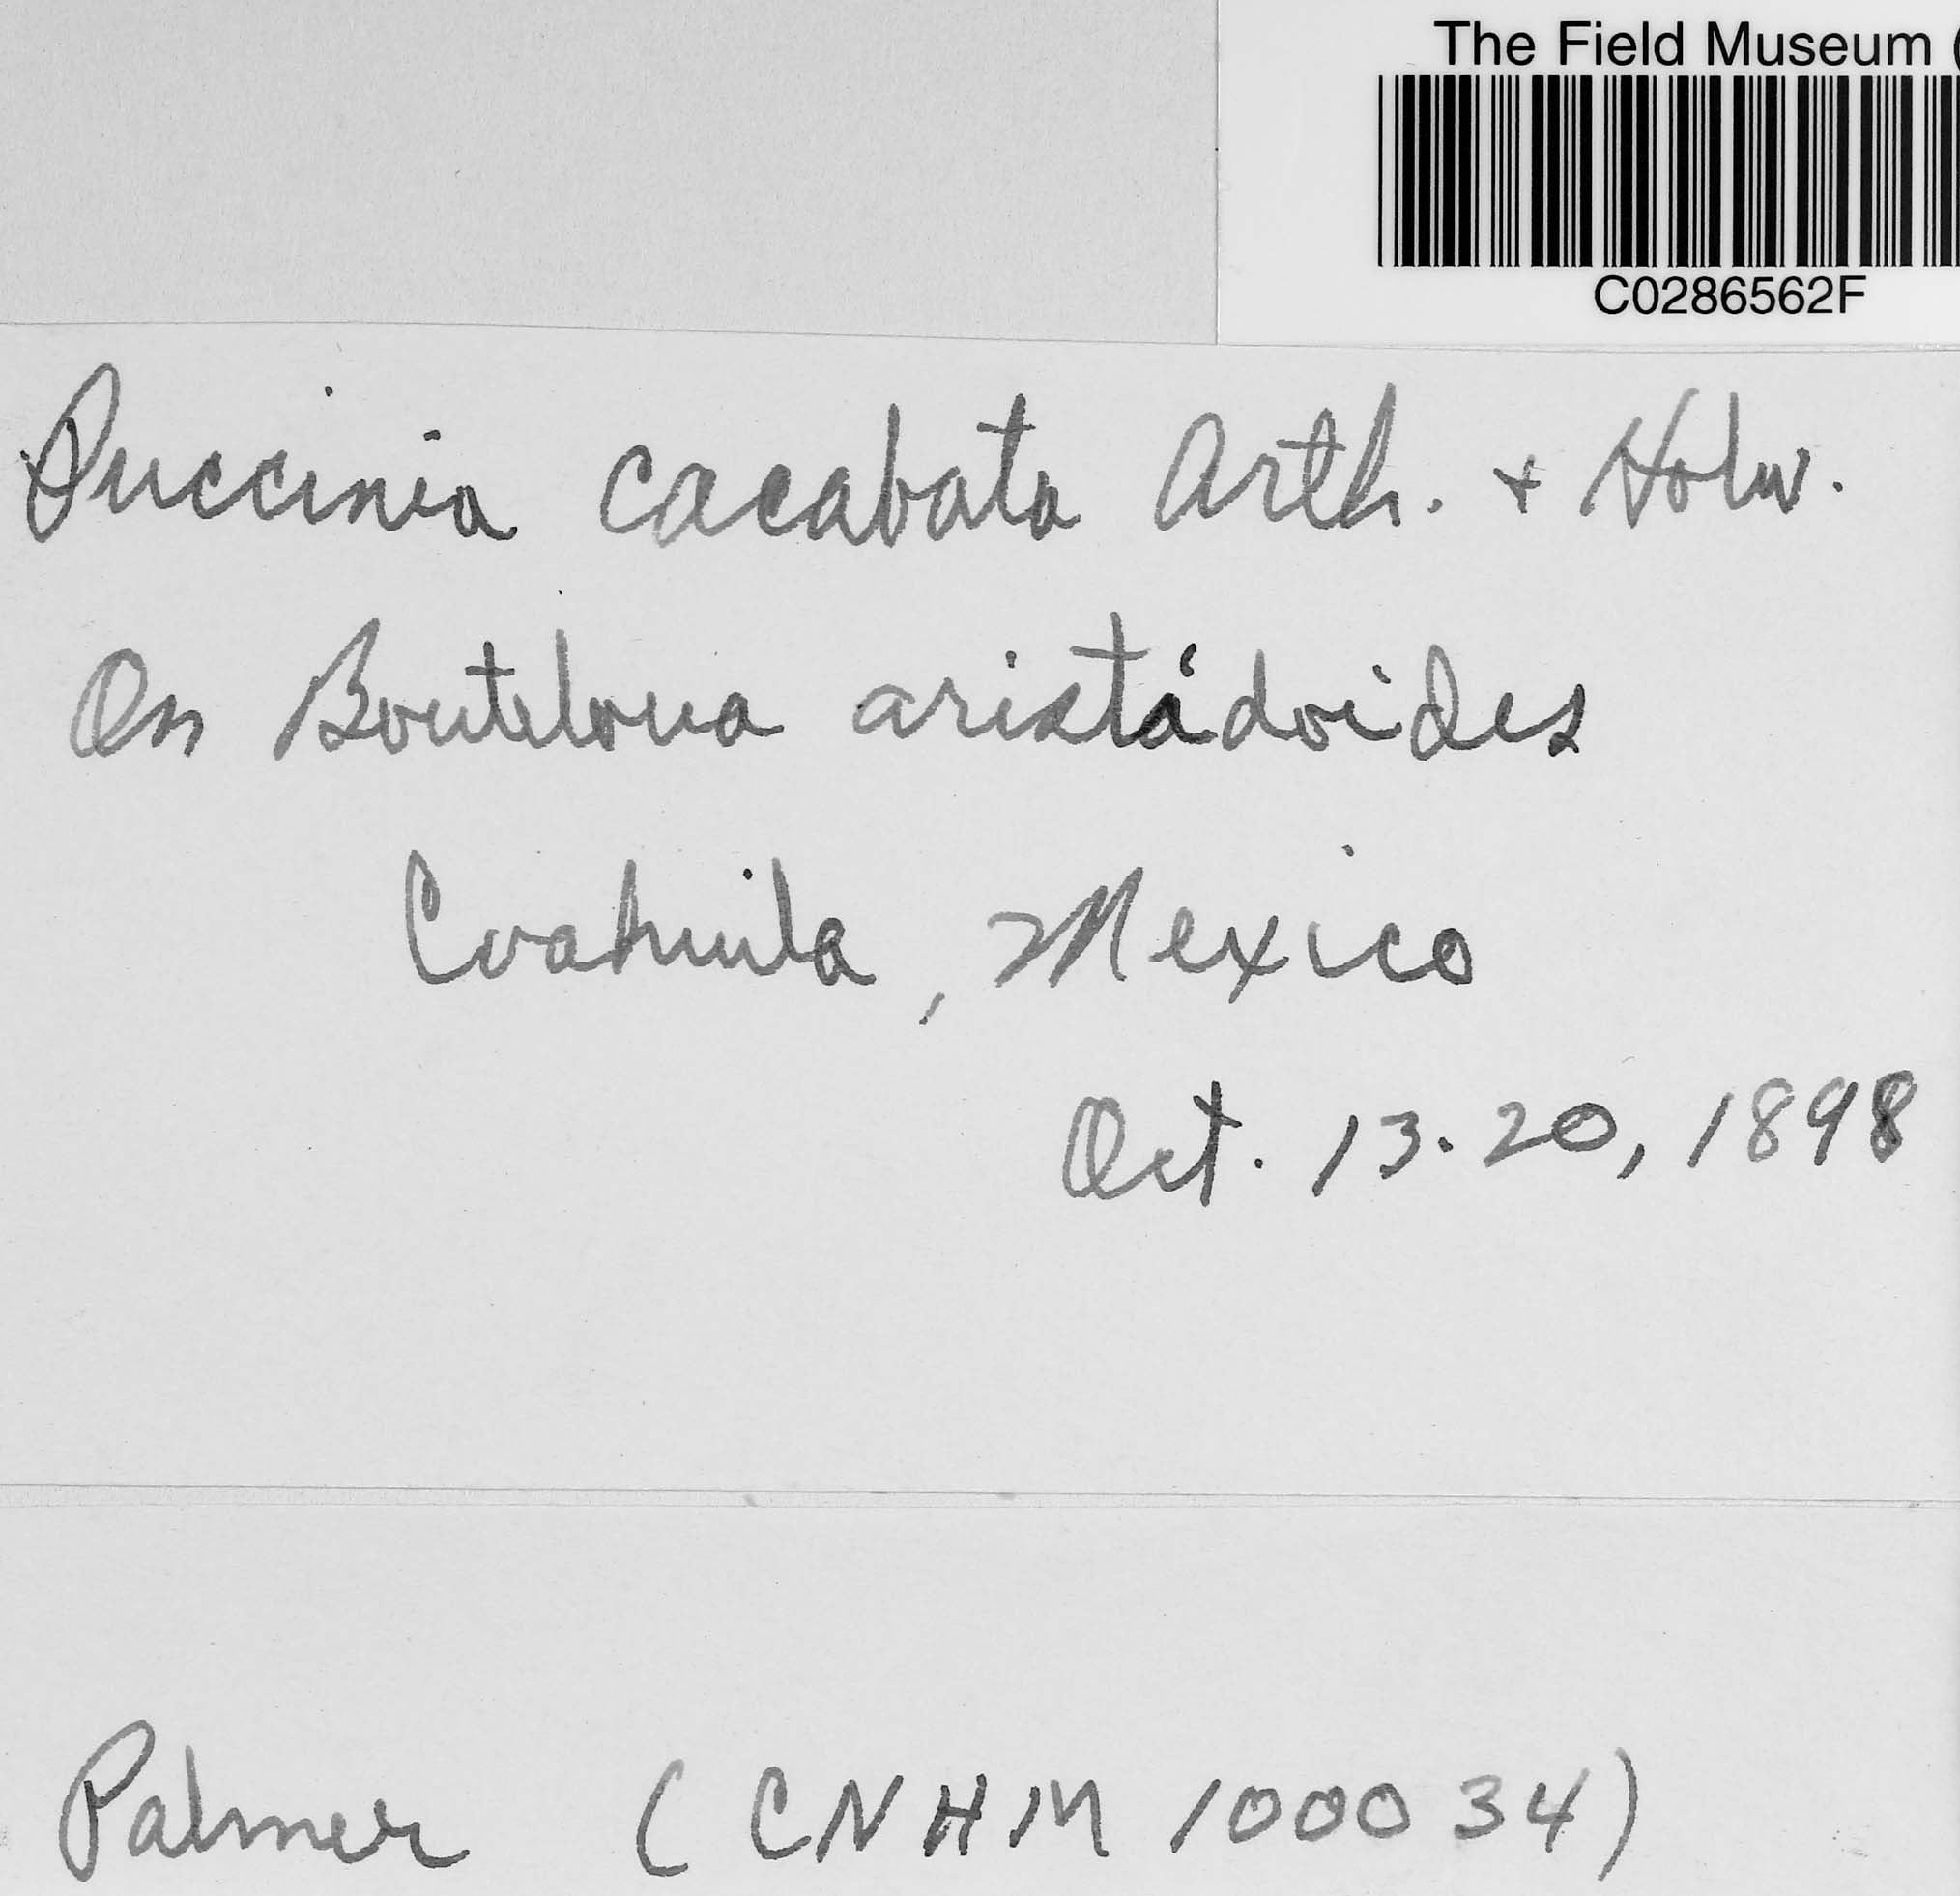 The Field Museum (
C0286562F
Puccinia cacabata Arth. + Holw.
On Bouteloua aristidoides
Coahuila, Mexico
Oct. 13-20, 1898
Palmer (CNHM 100034)